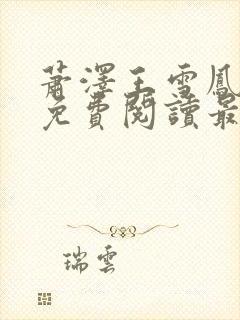 蕭澤王雪鳳
免費閱讀最
瑞雲